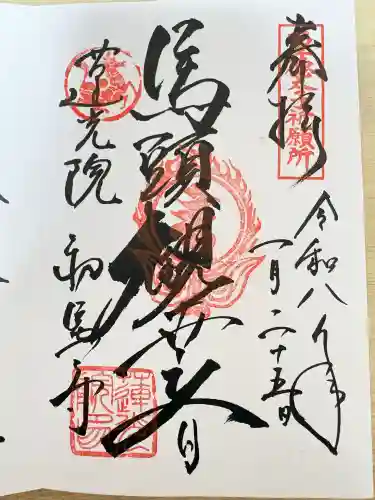 奉拝
令和八年
一月二十五日
馬頭観世音
蓮光院
初馬寺